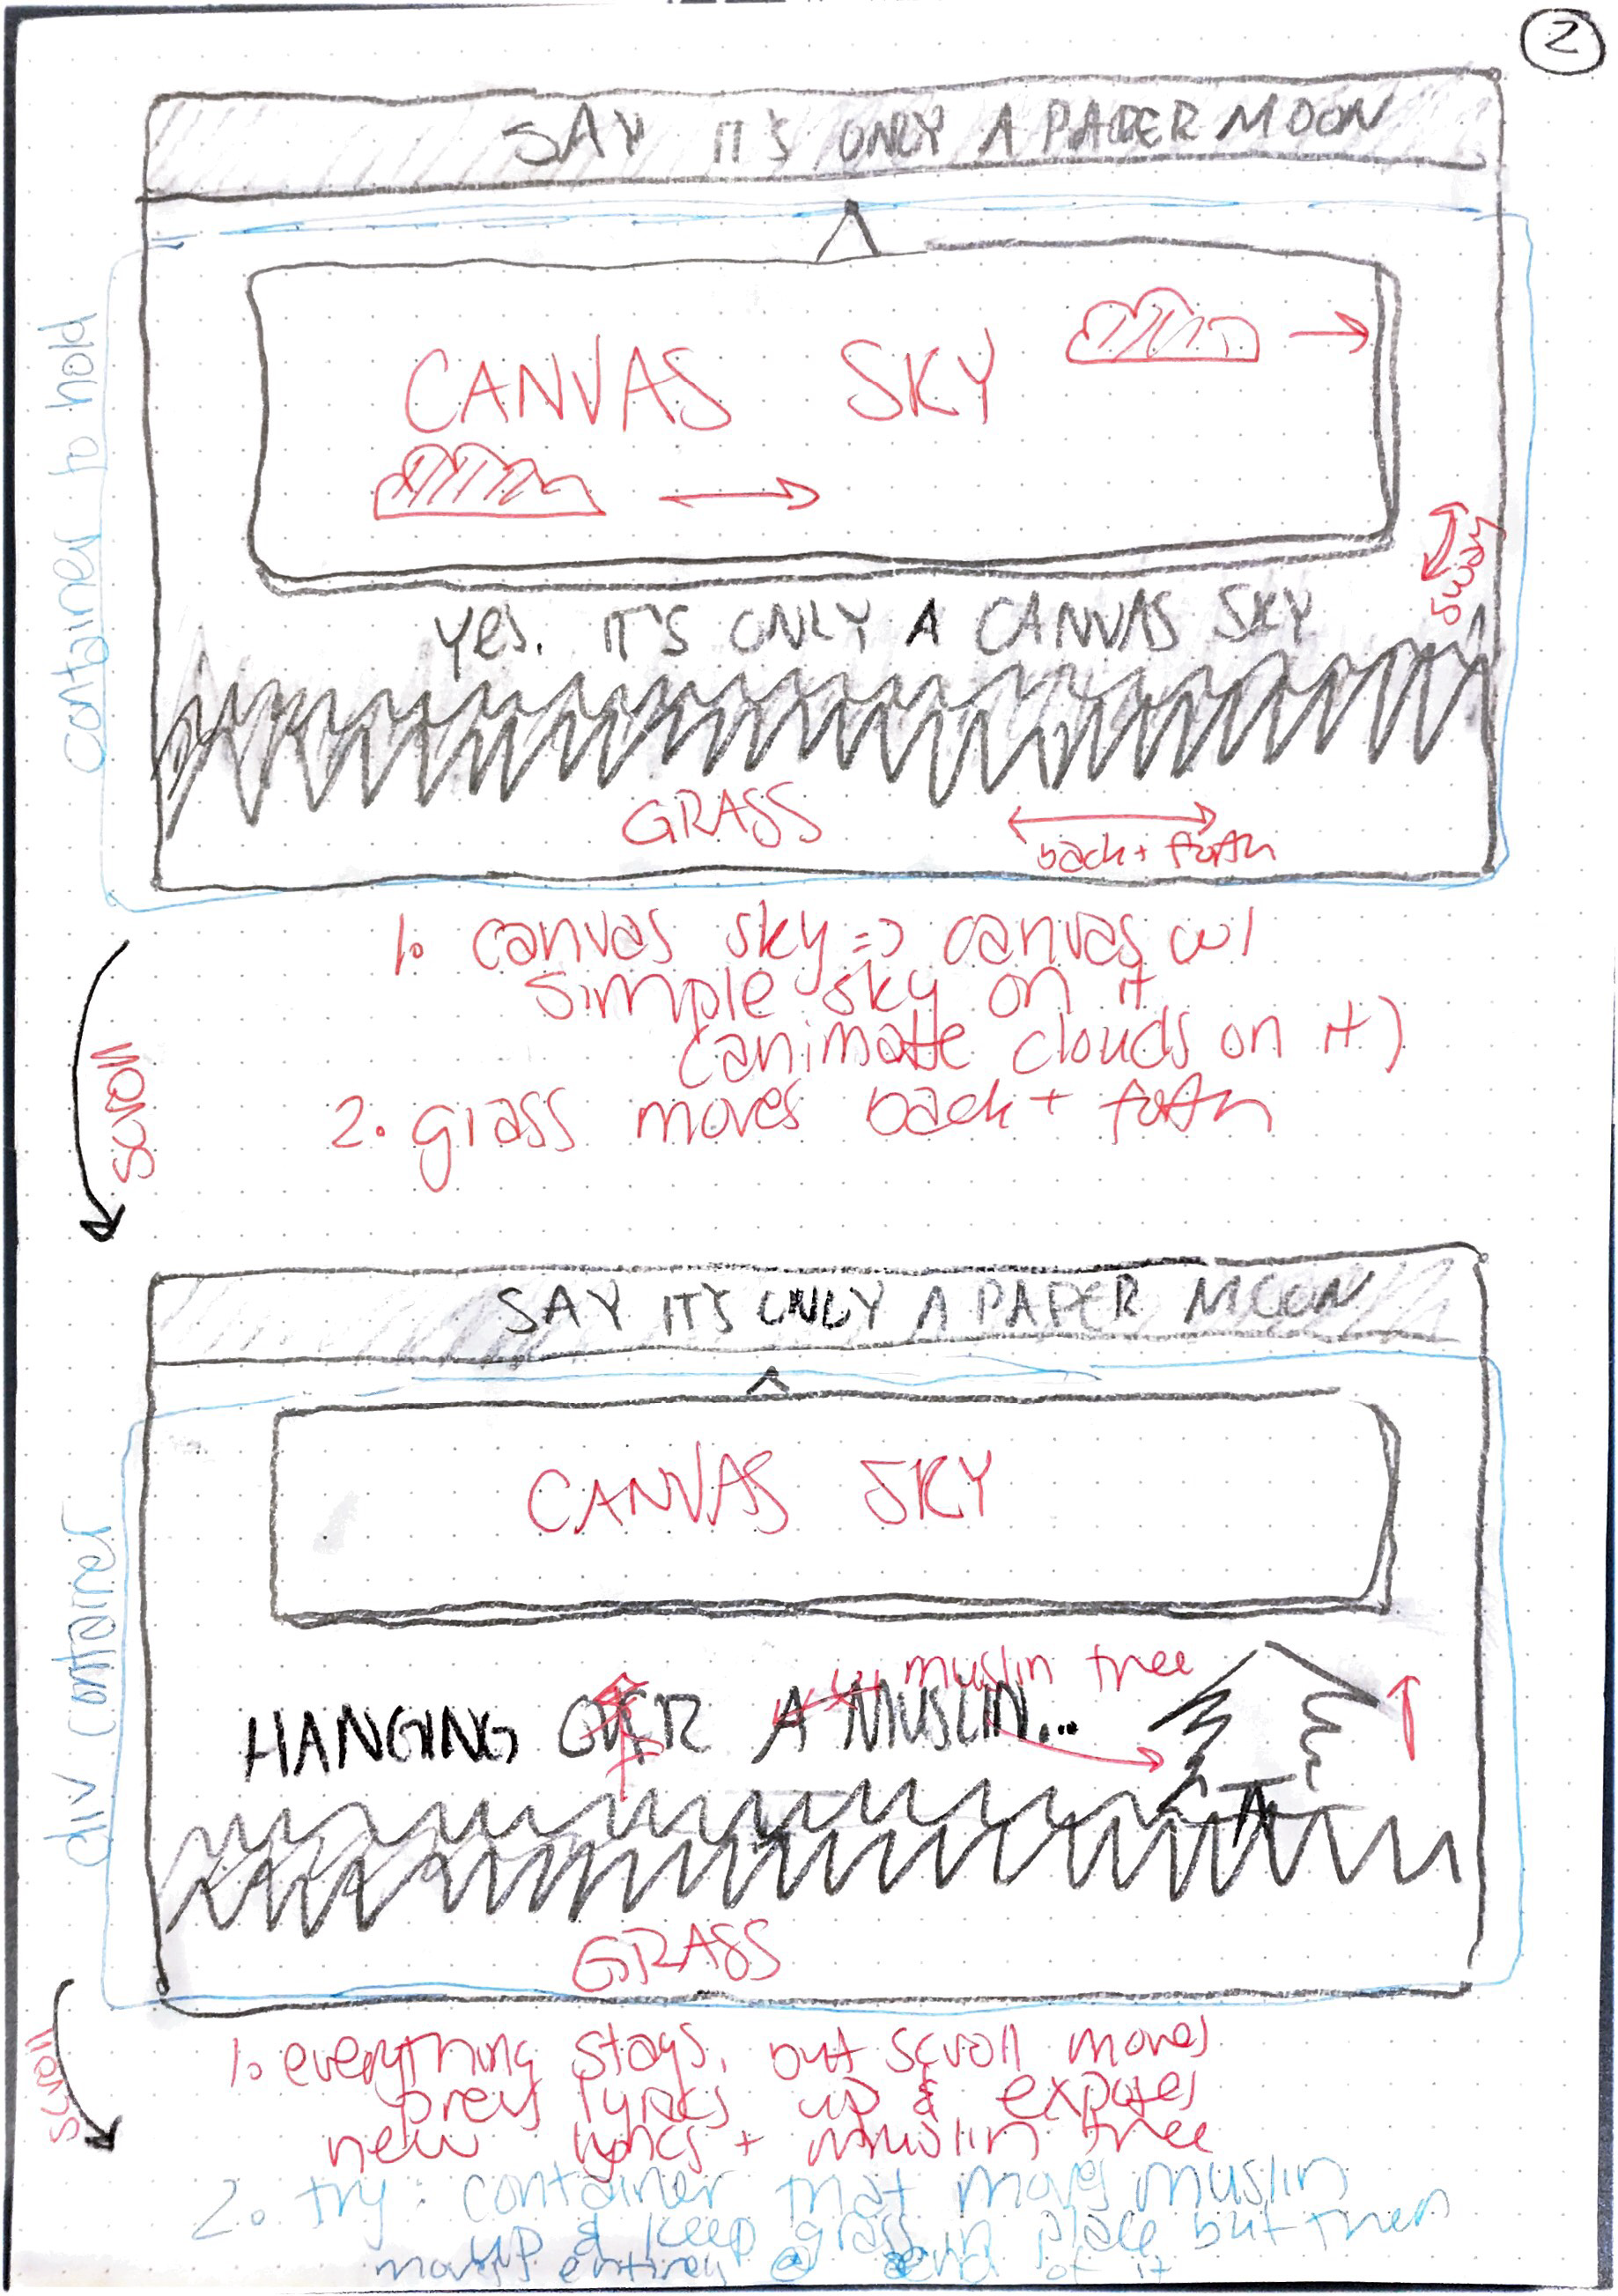 2
SAY IT'S ONLY A PAPER MOON
container to hold
CANVAS SKY
sway
Yes. IT'S ONLY A CANVAS SKY
GRASS
back + forth
1. canvas sky => canvas w/
simple sky on it
(animate clouds on it)
2. grass moves back + forth
scroll
SAY IT'S ONLY A PAPER MOON
div container
CANVAS SKY
muslin tree
HANGING OVER A MUSLIN...
GRASS
scroll
1. everything stays, but scroll moves
prev lyrics up & exposes
new lyrics + muslin tree
2. try: container that moves muslin
up & keep grass in place but then
moves entirely @ end of it